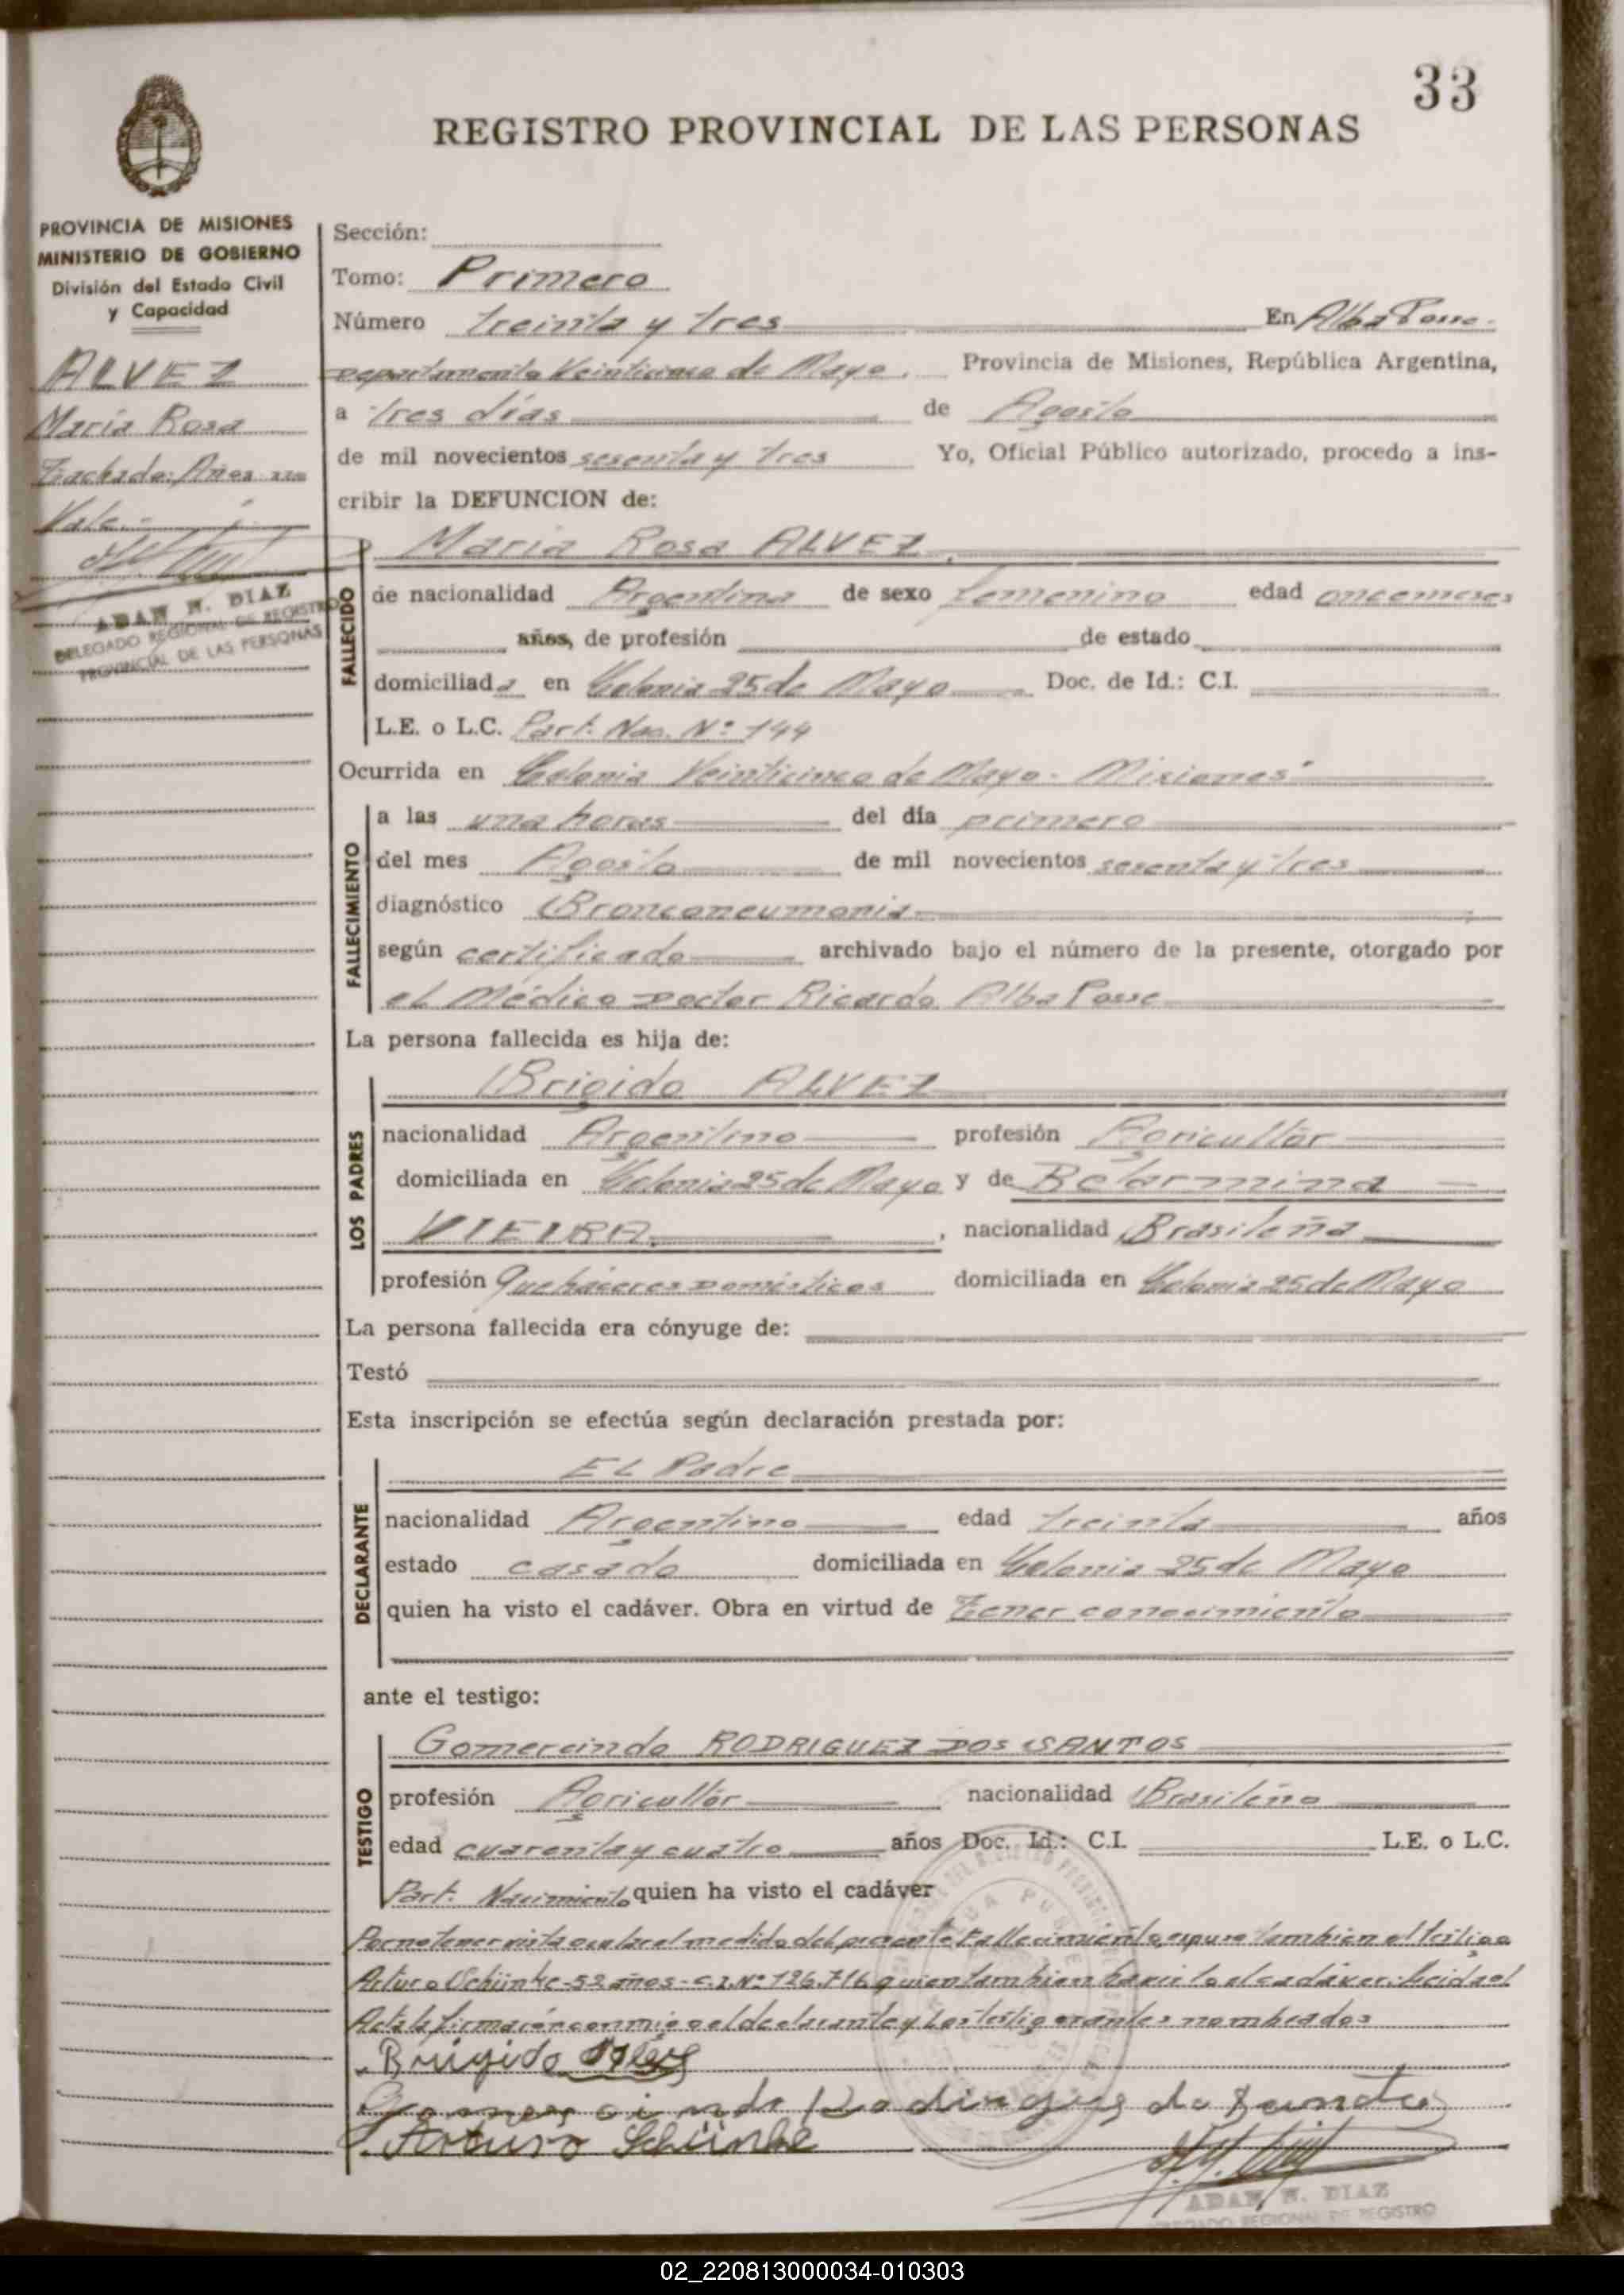 33
REGISTRO PROVINCIAL DE LAS PERSONAS
PROVINCIA DE MISIONES
MINISTERIO DE GOBIERNO
División del Estado Civil
y Capacidad
ALVEZ
María Rosa
Tachado: Años no
Vale.-
ADAN N. DIAZ
DELEGADO REGIONAL DE REGISTRO
PROVINCIAL DE LAS PERSONAS
Sección:
Tomo: Primero
Número treinta y tres En Alba Posse.
Departamento Veinticinco de Mayo. Provincia de Misiones, República Argentina,
a tres días de Agosto
de mil novecientos sesenta y tres Yo, Oficial Público autorizado, procedo a ins-
cribir la DEFUNCION de:
María Rosa ALVEZ
FALLECIDO
de nacionalidad Argentina de sexo femenino edad once meses
años, de profesión de estado
domiciliada en Colonia 25 de Mayo Doc. de Id.: C.I.
L.E. o L.C. Part. Nac. Nº 144
Ocurrida en Colonia Veinticinco de Mayo - Misiones
FALLECIMIENTO
a las una horas del día primero
del mes Agosto de mil novecientos sesenta y tres
diagnóstico Bronconeumonia
según certificado archivado bajo el número de la presente, otorgado por
el Médico Doctor Ricardo Alba Posse
La persona fallecida es hija de:
LOS PADRES
Brigido ALVEZ
nacionalidad Argentino profesión Agricultor
domiciliada en Colonia 25 de Mayo y de Belarmina
VIEIRA, nacionalidad Brasileña
profesión Quehaceres Domésticos domiciliada en Colonia 25 de Mayo
La persona fallecida era cónyuge de:
Testó
Esta inscripción se efectúa según declaración prestada por:
DECLARANTE
El Padre
nacionalidad Argentino edad treinta años
estado casado domiciliada en Colonia 25 de Mayo
quien ha visto el cadáver. Obra en virtud de Tener conocimiento
ante el testigo:
TESTIGO
Gomercindo RODRIGUEZ DOS SANTOS
profesión Agricultor nacionalidad Brasileño
edad cuarenta y cuatro años Doc. Id.: C.I. L.E. o L.C.
Part. Nacimiento quien ha visto el cadáver
Por no tener vista ocular el medido del presente Fallecimiento, expuso tambien el testigo
Arturo Schünke - 52 años - C.I. Nº 126.716 quien tambien ha visto el cadáver. Leida el
Acta la firmarón conmigo el declarante y los testigos antes nombrados
Brigido Alvez
Gomercindo Rodrigues do Santos
Arturo Schünke
ADAN N. DIAZ
DELEGADO REGIONAL DE REGISTRO
02_220813000034-010303